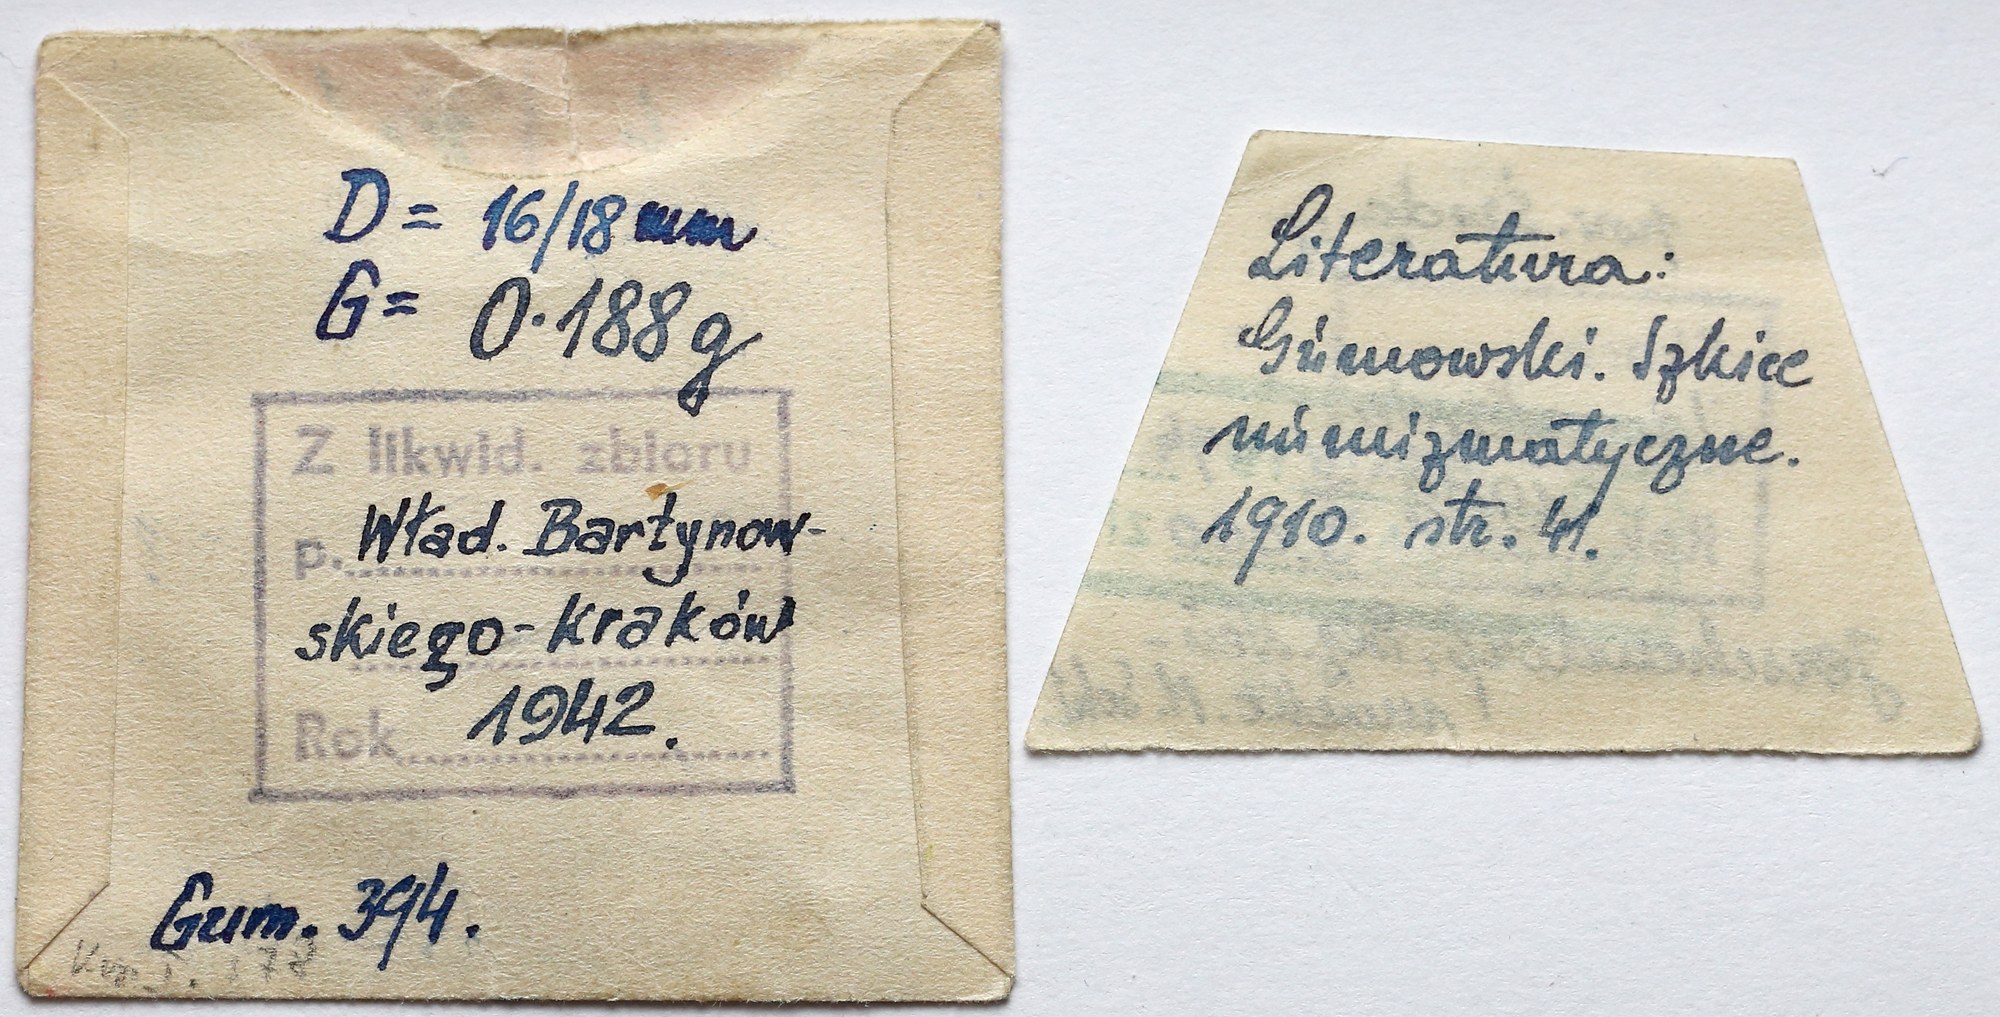 D = 16/18 mm
G = 0.188 g
Z likwid. zbioru
p. Wład. Bartynow-
skiego - Kraków
Rok 1942.
Gum. 394.
Literatura:
Gumowski. Szkice
numizmatyczne.
1910. str. 41.